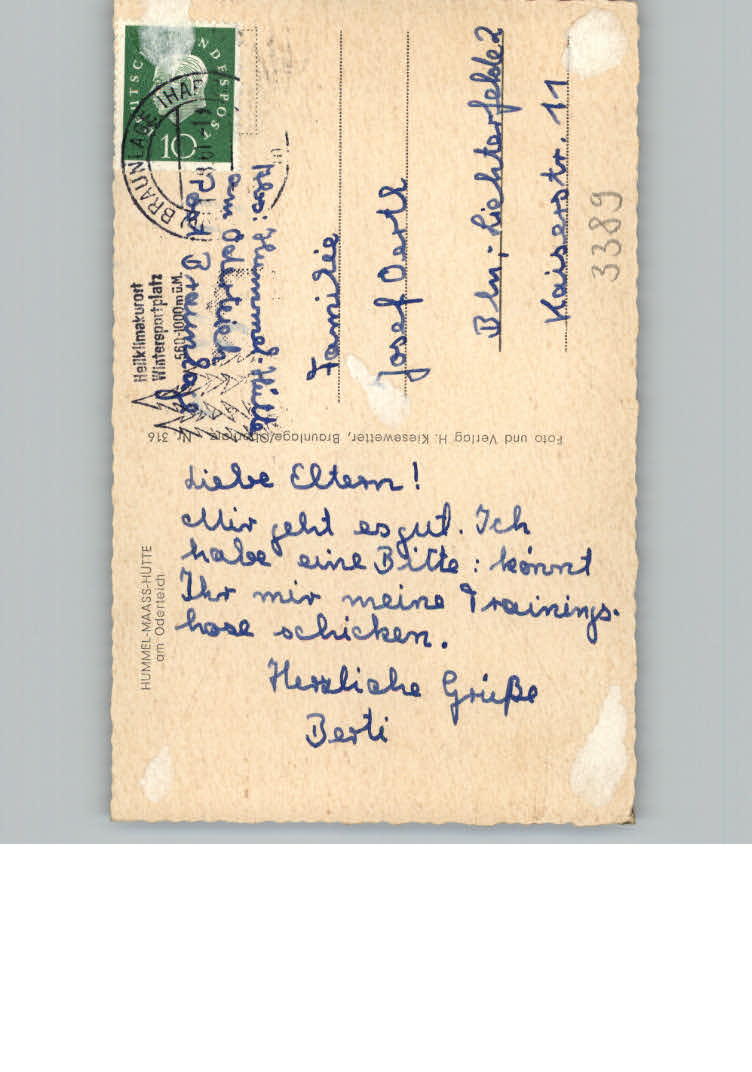 HUMMEL-MAASS-HÜTTE
am Oderteich
Liebe Eltern!
Mir geht es gut. Ich
habe eine Bitte: könnt
Ihr mir meine Trainings-
hose schicken.
Herzliche Grüße
Berti
Foto und Verlag H. Kiesewetter, Braunlage/Oberharz Nr. 316
DEUTSCHE BUNDESPOST
10
BRAUNLAGE (HARZ)
Heilklimakurort
Wintersportplatz
560-1000m ü.M.
Hummel-Hütte
am Oderteich
Post Braunlage
Familie
Josef Oerth
Bln.-Lichterfelde 2
Kaiserstr. 11
3389